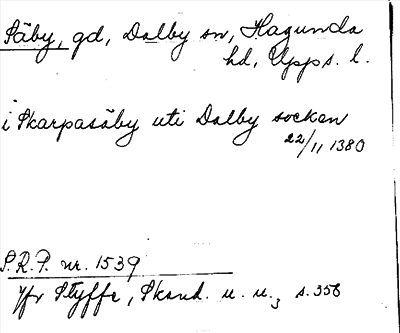 Säby, gd, Dalby sn, Hagunda
hd, Upps. l.
i Skarpasäby uti Dalby socken
22/11 1380
S.R.P. nr. 1539
Jfr Styffe, Skand. u. u., s. 358